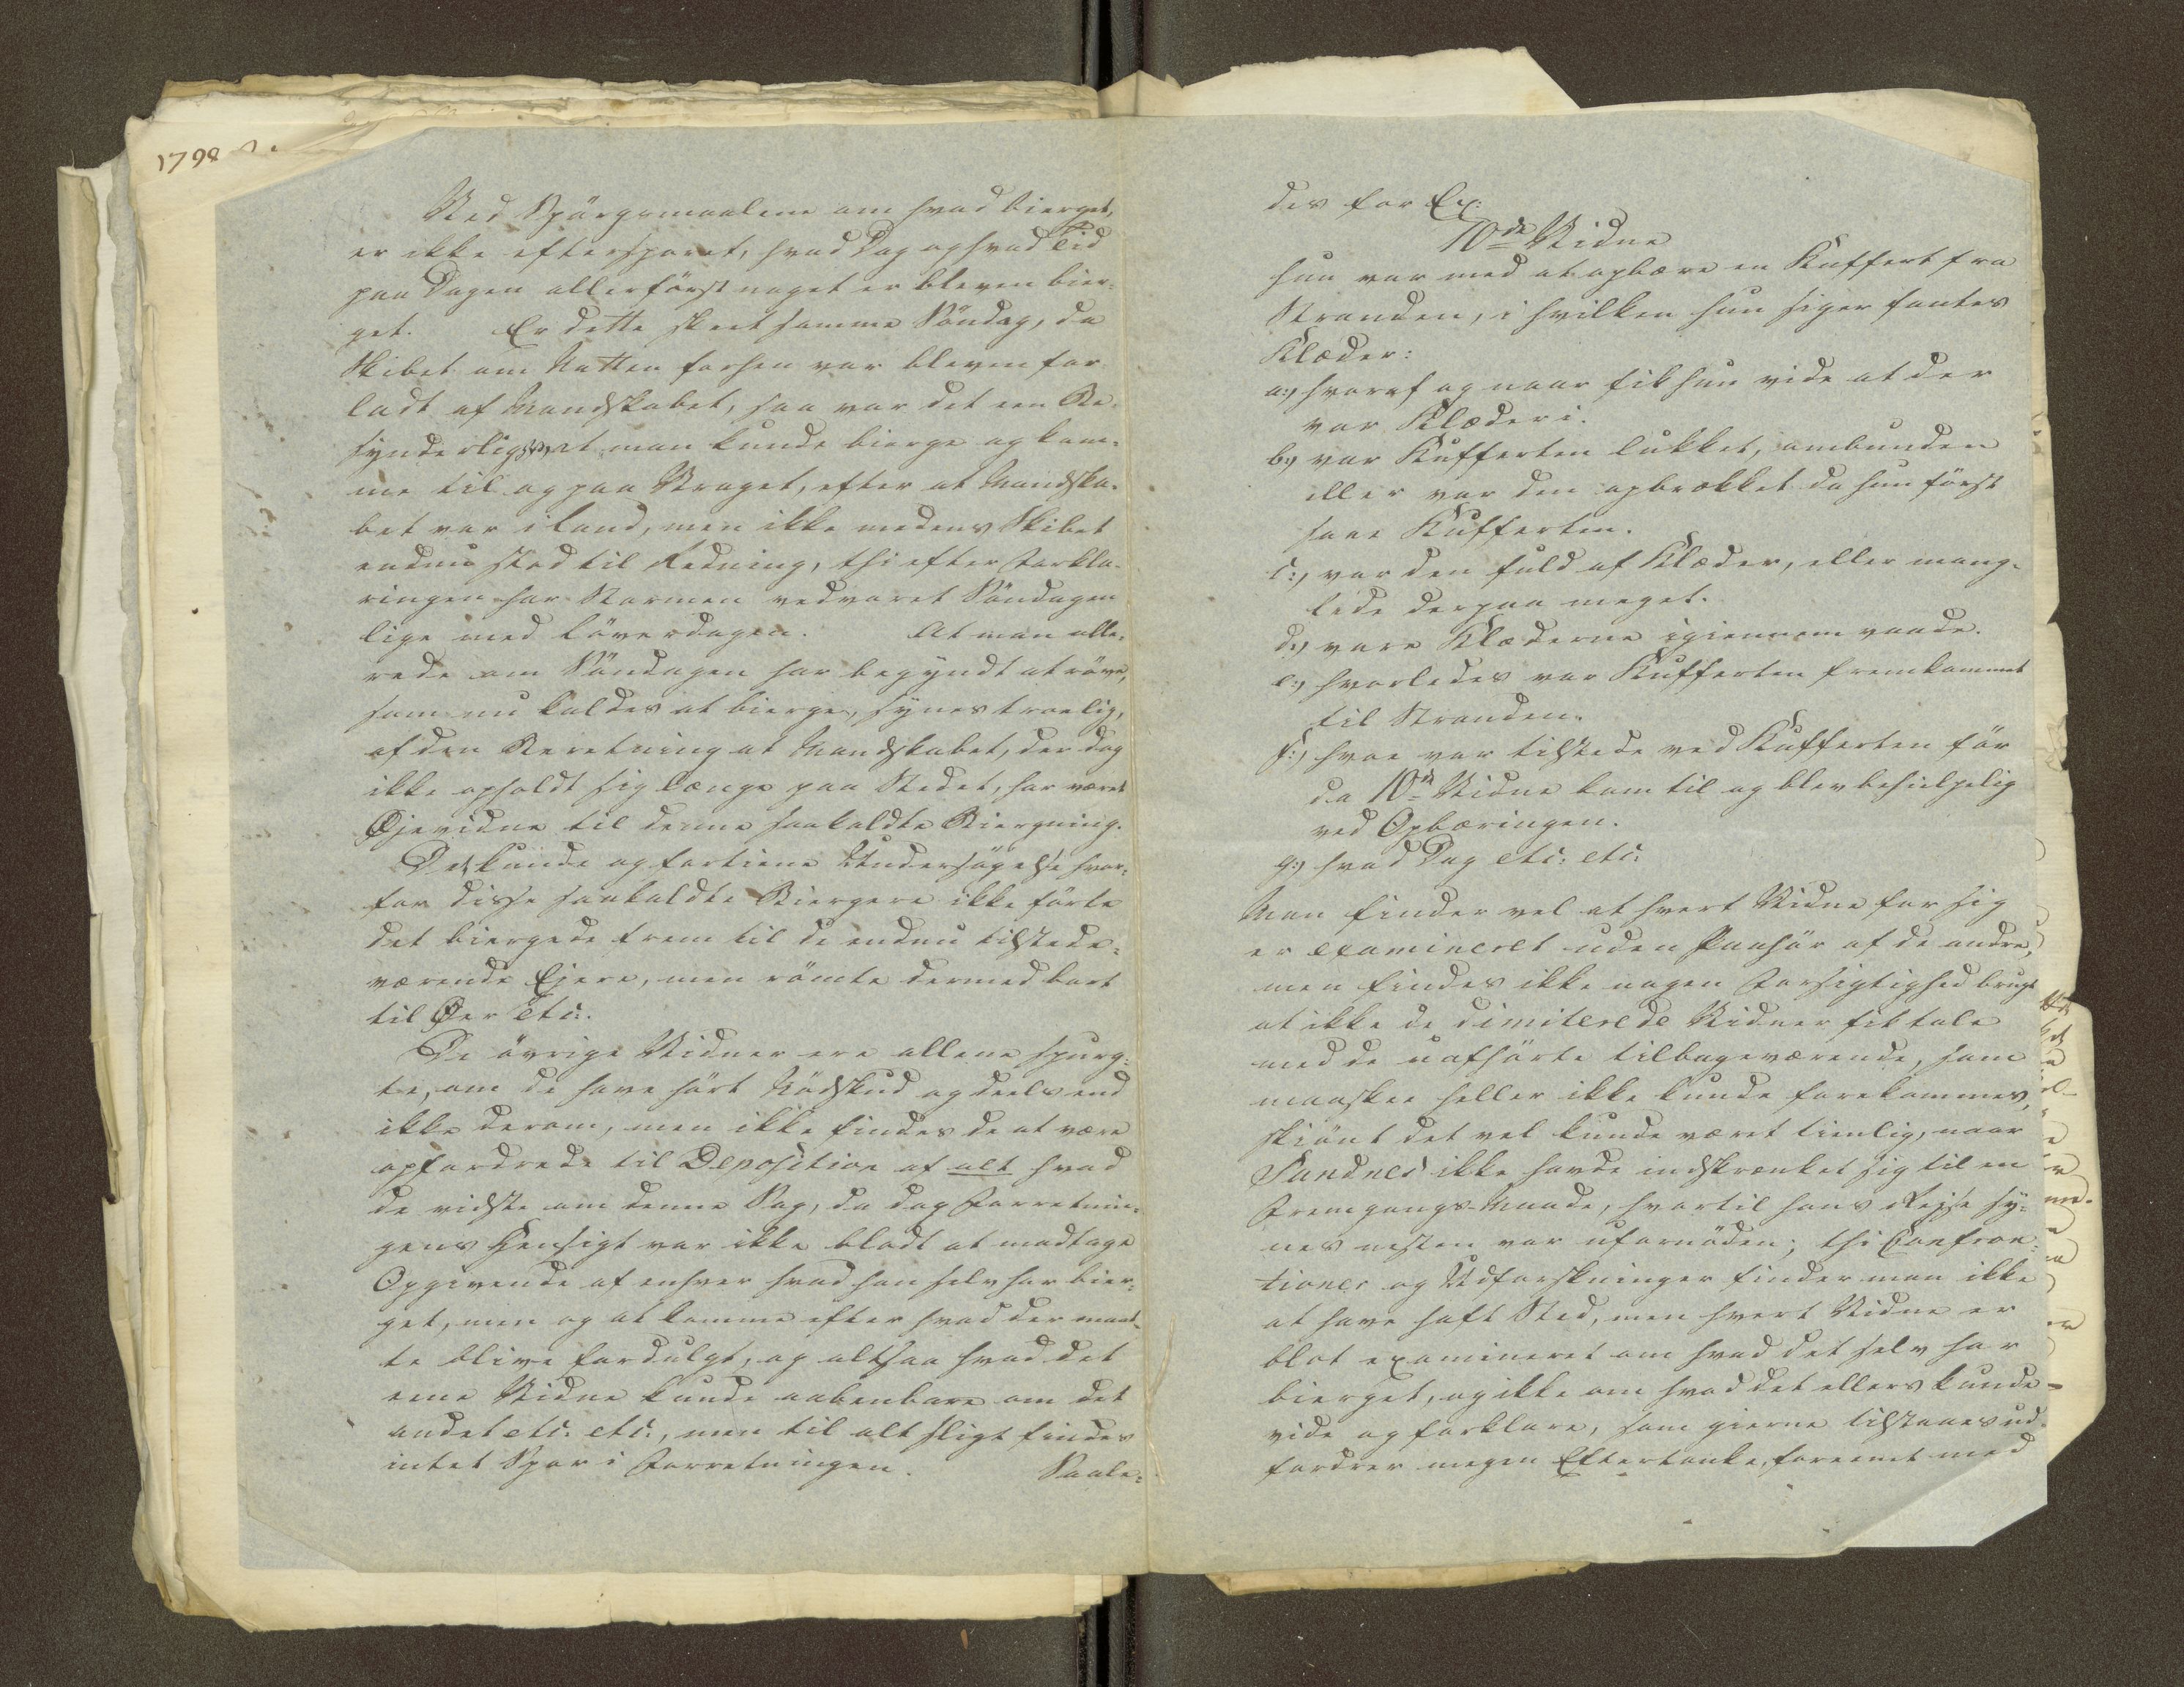 1798
Ved Spörgsmaalene om hvad bierget,
er ikke eftersporet, hvad Dag og hvad Tid
paa Dagen allerförst noget er bleven bier-
get. Er dette skeet samme Söndag, da
Skibet om Natten forhen var bleven for
ladt af Mandskabet, saa var det een Be-
synderlighed, at man kunde bierge og kom-
me til og paa Vraget, efter at Mandska-
bet var i Land, men ikke medens Skibet
endnu stod til Redning, thi efter Forkla-
ringen har Stormen vedvaret Söndagen
lige med Löverdagen. At man alle-
rede om Söndagen har begyndt at röve,
som nu kaldes at bierge, synes troelig,
af den Beretning at Mandskabet, der dog
ikke opholdt sig længe paa Stedet, har været
Øjevidne til denne saakaldte Biergning.
Det kunde og fortiene Undersögelse hvor-
for disse saakaldte Biergere ikke förte
det biergede frem til de endnu tilstede-
værende Ejere, men römte dermed bort
til Øer etc:.
De övrige Vidner ere allene spurg-
te, om de have hört Nödskud og deels end
ikke derom, men ikke findes de at være
opfordrede til Deposition af alt hvad
de vidste om denne Sag, da dog Forretnin-
gens Hensigt var ikke blodt at modtage
Opgivende af enhver hvad han selv har bier-
get, men og at komme efter hvad der maat-
te blive fordulgt, og altsaa hvad det
eene Vidne kunde aabenbare om det
andet etc: etc:, men til alt sligt findes
intet Spor i Forretningen. Saale-
des for Ex:
10de Vidne
hun var med at opbære en Kuffert fra
Stranden, i hvilken hun siger fantes
Klæder:
a:, hvoraf og naar fik hun vide at der
var Klæder i.
b:, var Kufferten lukket, ombunden
eller var den opbrækket da hun först
saae Kufferten.
c:, var den fuld af Klæder, eller mang-
lede derpaa meget.
d:, vare Klæderne igiennem vaade.
e:, hvorledes var Kufferten fremkommet
til Stranden.
f:, hvoe var tilstede ved Kufferten för
da 10de Vidne kom til og blev behielpelig
ved Opbæringen.
g:, hvad Dag etc: etc:
Man finder vel at hvert Vidne for sig
er examineret uden Paahör af de andre,
men findes ikke nogen Forsigtighed brugt
at ikke de dimiterede Vidner fik tale
med de uafhörte tilbageværende, som
maaskee heller ikke kunde forekommes,
skiönt det vel kunde været tienlig, naar
Sandnes ikke havde indskrænket sig til en
Fremgangs-Maade, hvortil hans Rejse sy-
nes nesten var ufornöden; thi Confron-
tioner og Udforskninger finder man ikke
at have haft Sted, men hvert Vidne er
blot examineret om hvad det selv har
bierget, og ikke om hvad det ellers kunde
vide og forklare, som gierne tilstaaes ud-
fordrer megen Eftertanke, foreenet med